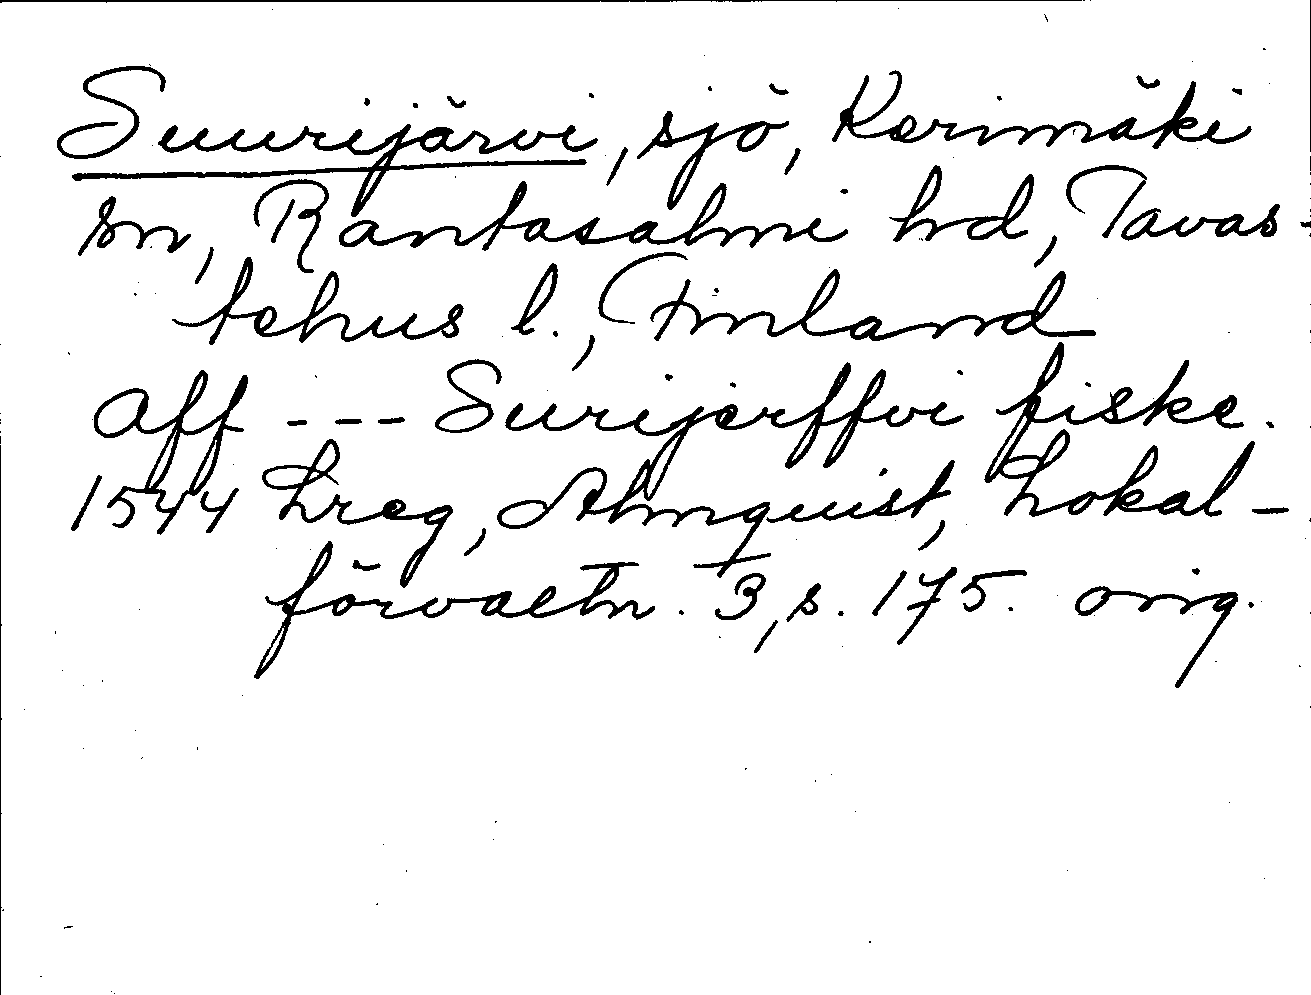 Suurijärvi, sjö, Kerimäki
sn, Rantasalmi hd, Tavas-
tehus l., Finland
aff --- Surijerffvi fiske.
1544 Lreg, Almquist, Lokal-
förvaltn. 3, s. 175. orig.